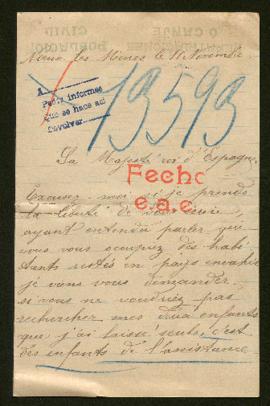 POBLACION
CIVIL
O CANJE
Nœux les Mines le 11 Novembre
A
Pedir informes
que se hace así
devolver
13593
Sa Majesté roi d'Espagne,
Fecho
e.a.c.
Excusez-moi si je prends
la liberté de vous écrire,
ayant entendu parler que
vous vous occupez des habi
tants restés en pays envahis
je vous demander
si vous ne voudriez pas
rechercher mes deux enfants
que j'ai laissé seuls, c'est
des enfants de l'assistance